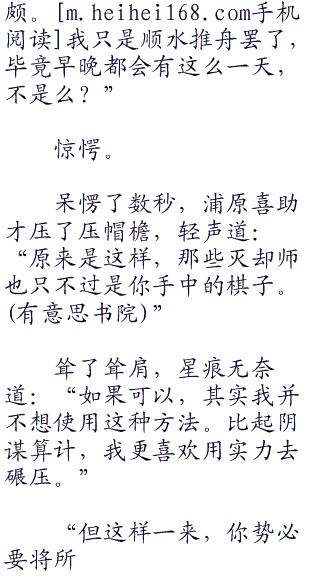 颇。[m.heihei168.com手机
阅读]我只是顺水推舟罢了，
毕竟早晚都会有这么一天，
不是么？”
惊愕。
呆愣了数秒，浦原喜助
才压了压帽檐，轻声道：
“原来是这样，那些灭却师
也只不过是你手中的棋子。
(有意思书院)”
耸了耸肩，星痕无奈
道：“如果可以，其实我并
不想使用这种方法。比起阴
谋算计，我更喜欢用实力去
碾压。”
“但这样一来，你势必
要将所